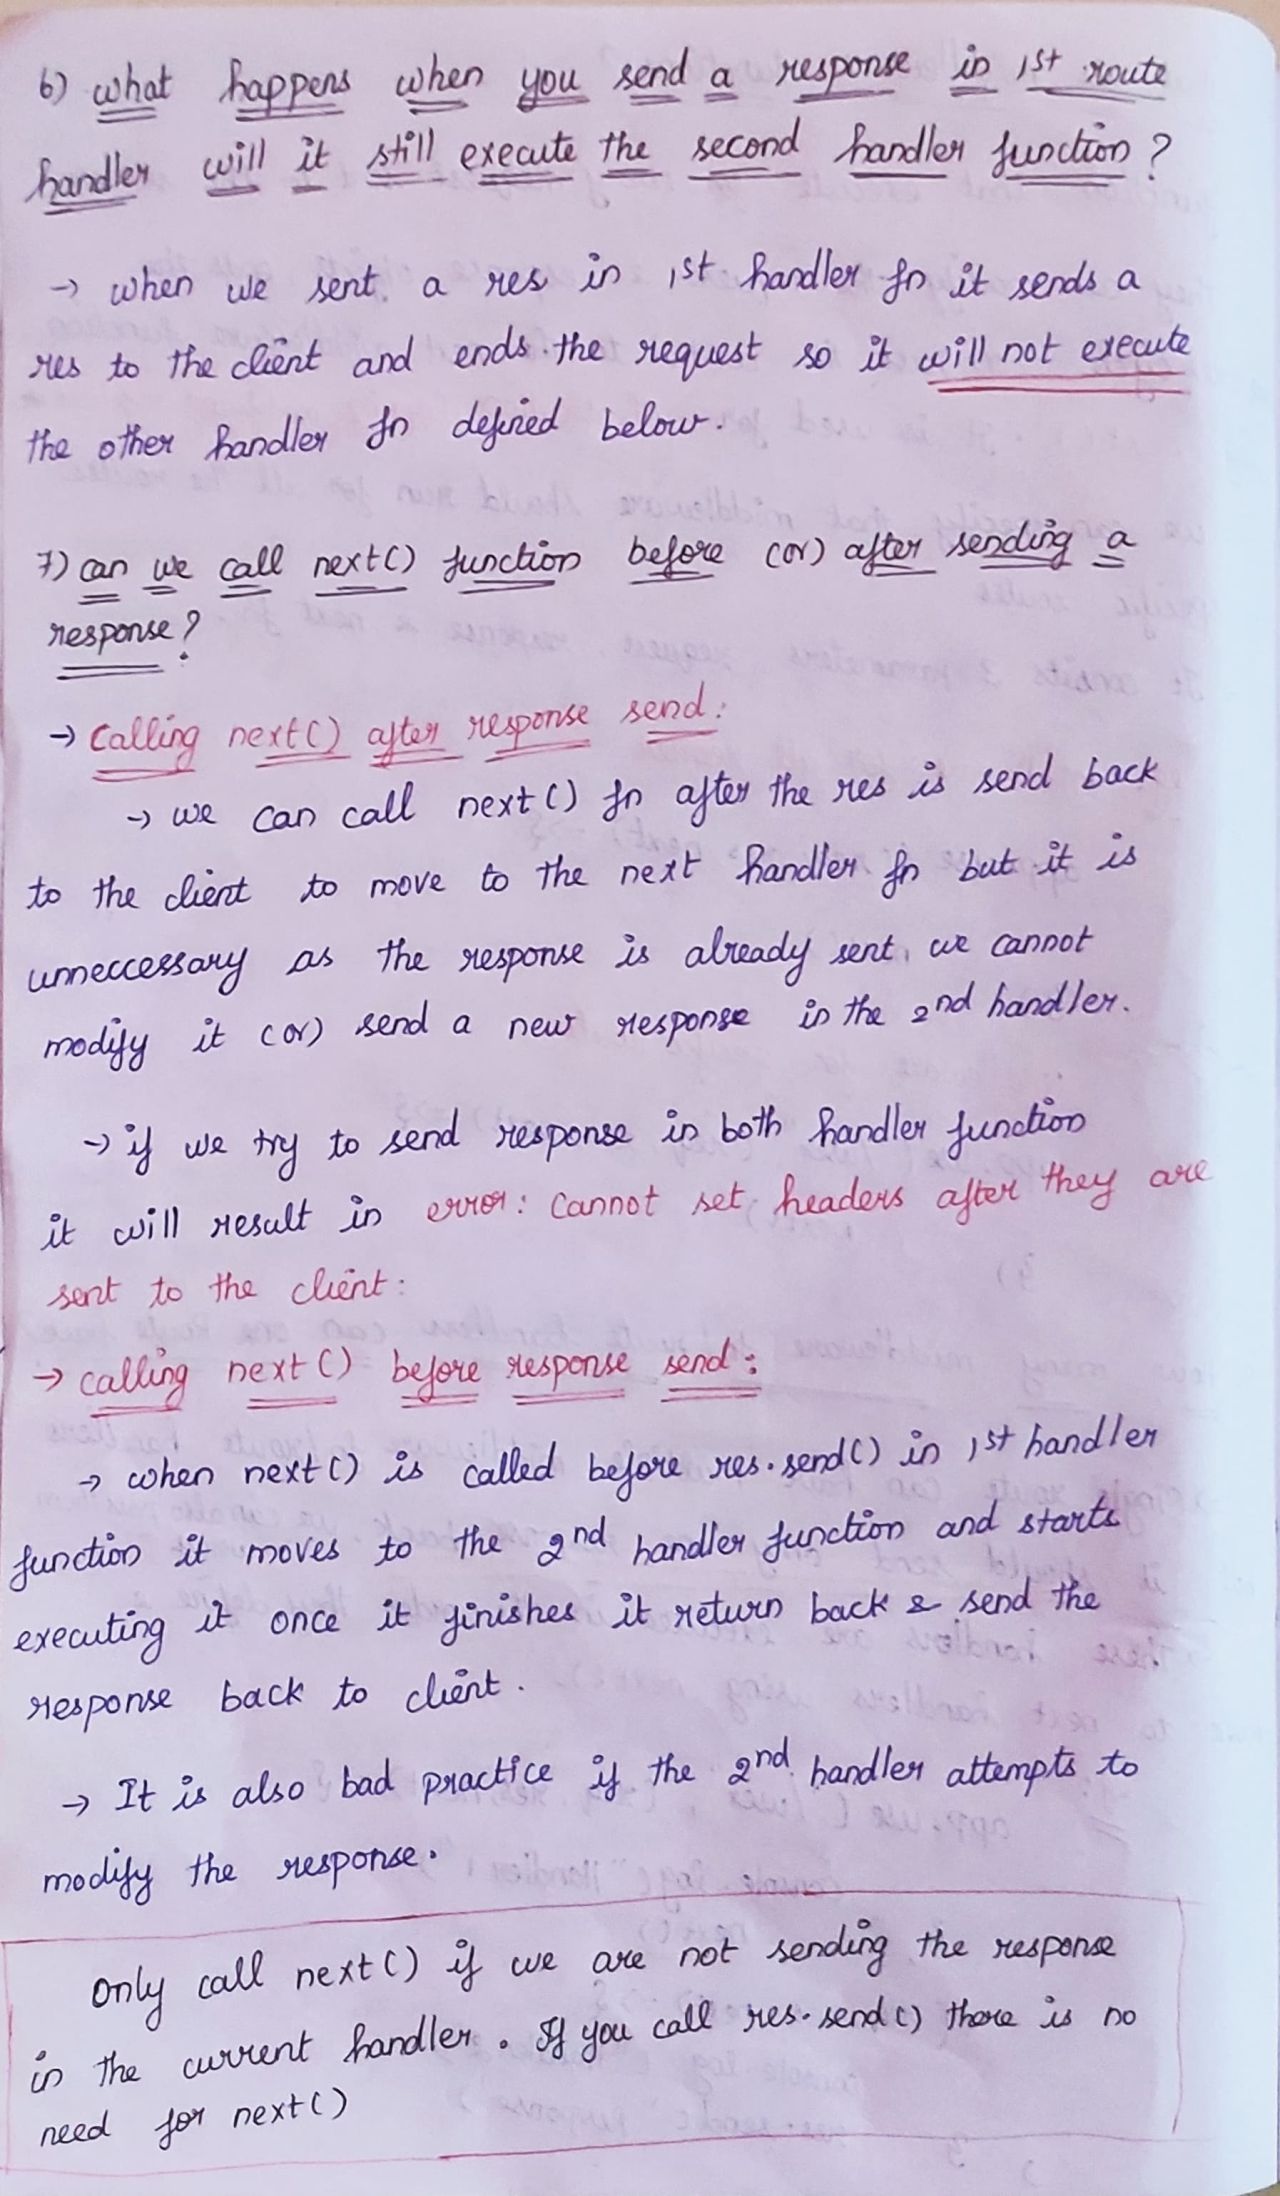 6) what happens when you send a response in 1st route
handler will it still execute the second handler function?
→ when we sent a res in 1st handler fn it sends a
res to the client and ends the request so it will not execute
the other handler fn defined below.
7) can we call next() function before (or) after sending a
response?
→ Calling next() after response send:
→ we can call next() fn after the res is send back
to the client to move to the next handler fn but it is
unneccessary as the response is already sent, we cannot
modify it (or) send a new response in the 2nd handler.
→ if we try to send response in both handler function
it will result in error: Cannot set headers after they are
sent to the client:
→ calling next() before response send:
→ when next() is called before res.send() in 1st handler
function it moves to the 2nd handler function and starts
executing it once it finishes it return back & send the
response back to client.
→ It is also bad practice if the 2nd handler attempts to
modify the response.
Only call next() if we are not sending the response
in the current handler. If you call res.send() there is no
need for next()